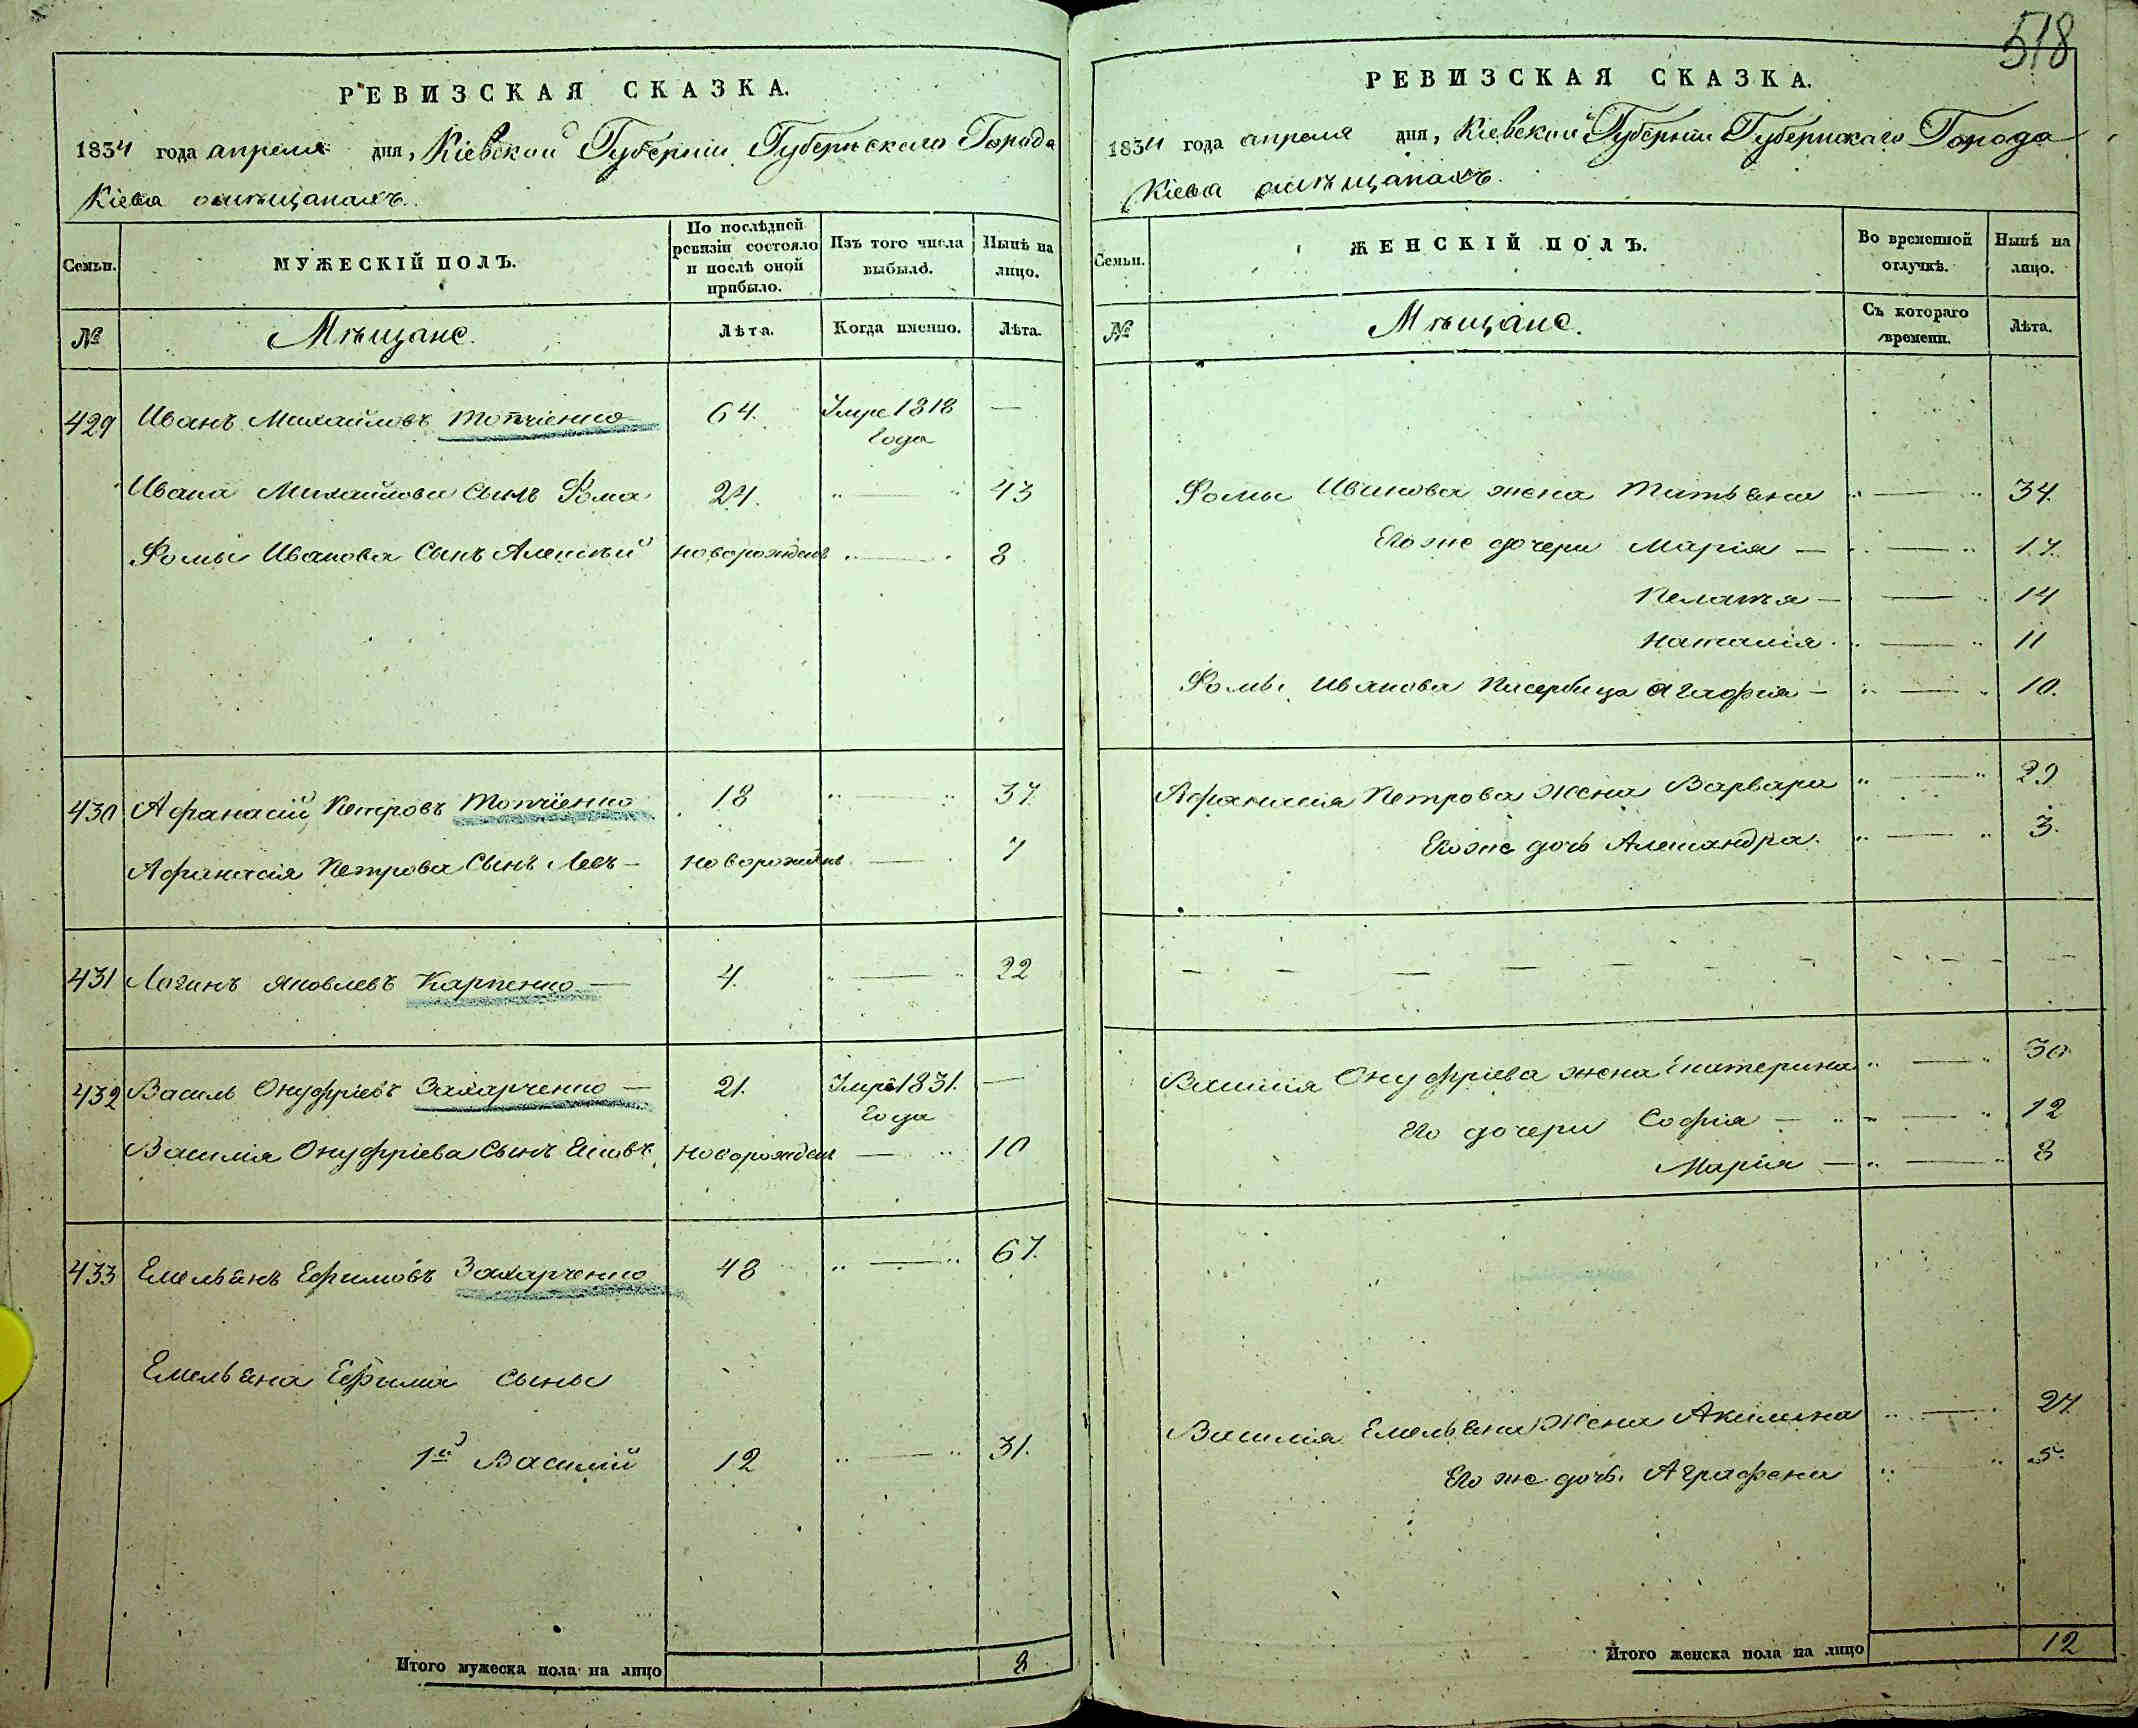 518
РЕВИЗСКАЯ СКАЗКА.
1834 года апреля дня, Кіевской Губерніи Губернскаго Города
Кіева о мѣщанахъ.
Семьи.
МУЖЕСКІЙ ПОЛЪ.
По послѣдней
ревизіи состояло
и послѣ оной
прибыло.
Изъ того числа
выбыло.
Нынѣ на
лицо.
№
Мѣщане.
Лѣта.
Когда именно.
Лѣта.
429 Иванъ Михайловъ Топчіенко 64. Умре 1818 —
года
Ивана Михайлова сынъ Фома 24. „ — „ 43
Фомы Иванова Сынъ Алексѣй новорожденъ „ — „ 8
430 Афанасій Петровъ Топчіенко 18 „ — „ 37.
Афанасія Петрова Сынъ Левъ — новорожденъ — 7
431 Логинъ Яковлевъ Карпенко — 4. „ — „ 22
432 Василь Онуфріевъ Захарченко — 21. Умре 1831. —
года
Василія Онуфріева Сынъ Яковъ новорожденъ — „ 10
433 Емельянъ Ефимовъ Захарченко 48 „ — „ 67.
Емельяна Ефима сыны
1й Василій 12 „ — „ 31.
Итого мужеска пола на лицо 8
РЕВИЗСКАЯ СКАЗКА.
1834 года апреля дня, Кіевской Губерніи Губернскаго Города
Кіева о мѣщанахъ.
Семьи.
ЖЕНСКІЙ ПОЛЪ.
Во временной
отлучкѣ.
Нынѣ на
лицо.
№
Мѣщане.
Съ котораго
времени.
Лѣта.
Фомы Иванова жена Татьяна „ — „ 34.
Его же дочери Марія — „ — „ 17.
Пелагея — — „ 14
Наталія „ — „ 11
Фомы Иванова Пасербица Агафія — „ — „ 10.
Афанасія Петрова Жена Варвара „ — „ 29
Его же дочь Александра. „ — „ 3.
— — — — — — — — — — —
Василія Онуфріева жена Екатерина „ — „ 30
Его дочери Софія — „ — „ 12
Марія — „ — „ 8
Василія Емельяна Жена Акилина „ — „ 27.
Его же дочь Аграфена „ „ 5.
Итого женска пола на лицо 12